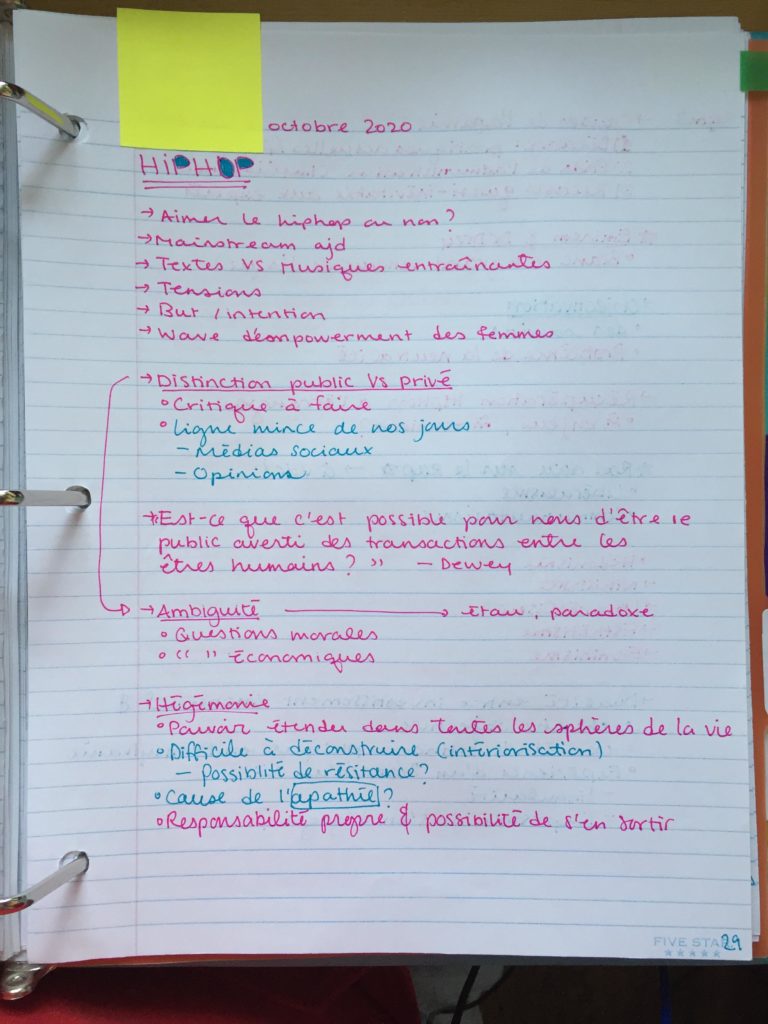 octobre 2020
HIPHOP
→ Aimer le hiphop ou non?
→ Mainstream ajd
→ Textes VS Musiques entraînantes
→ Tensions
→ But / intention
→ Wave d'empowerment des femmes
→ Distinction public vs privé
° Critique à faire
° Ligne mince de nos jours
- Médias sociaux
- Opinions
*Est-ce que c'est possible pour nous d'être le
public averti des transactions entre les
êtres humains? " - Dewey
→ Ambiguité → Étau, paradoxe
° Questions morales
° " " Économiques
→ Hégémonie
° Pouvoir étender dans toutes les sphères de la vie
° Difficile à déconstruire (intériorisation)
- Possiblité de résitance?
° Cause de l'apathie?
° Responsabilité propre & possibilité de s'en sortir
FIVE STA
29